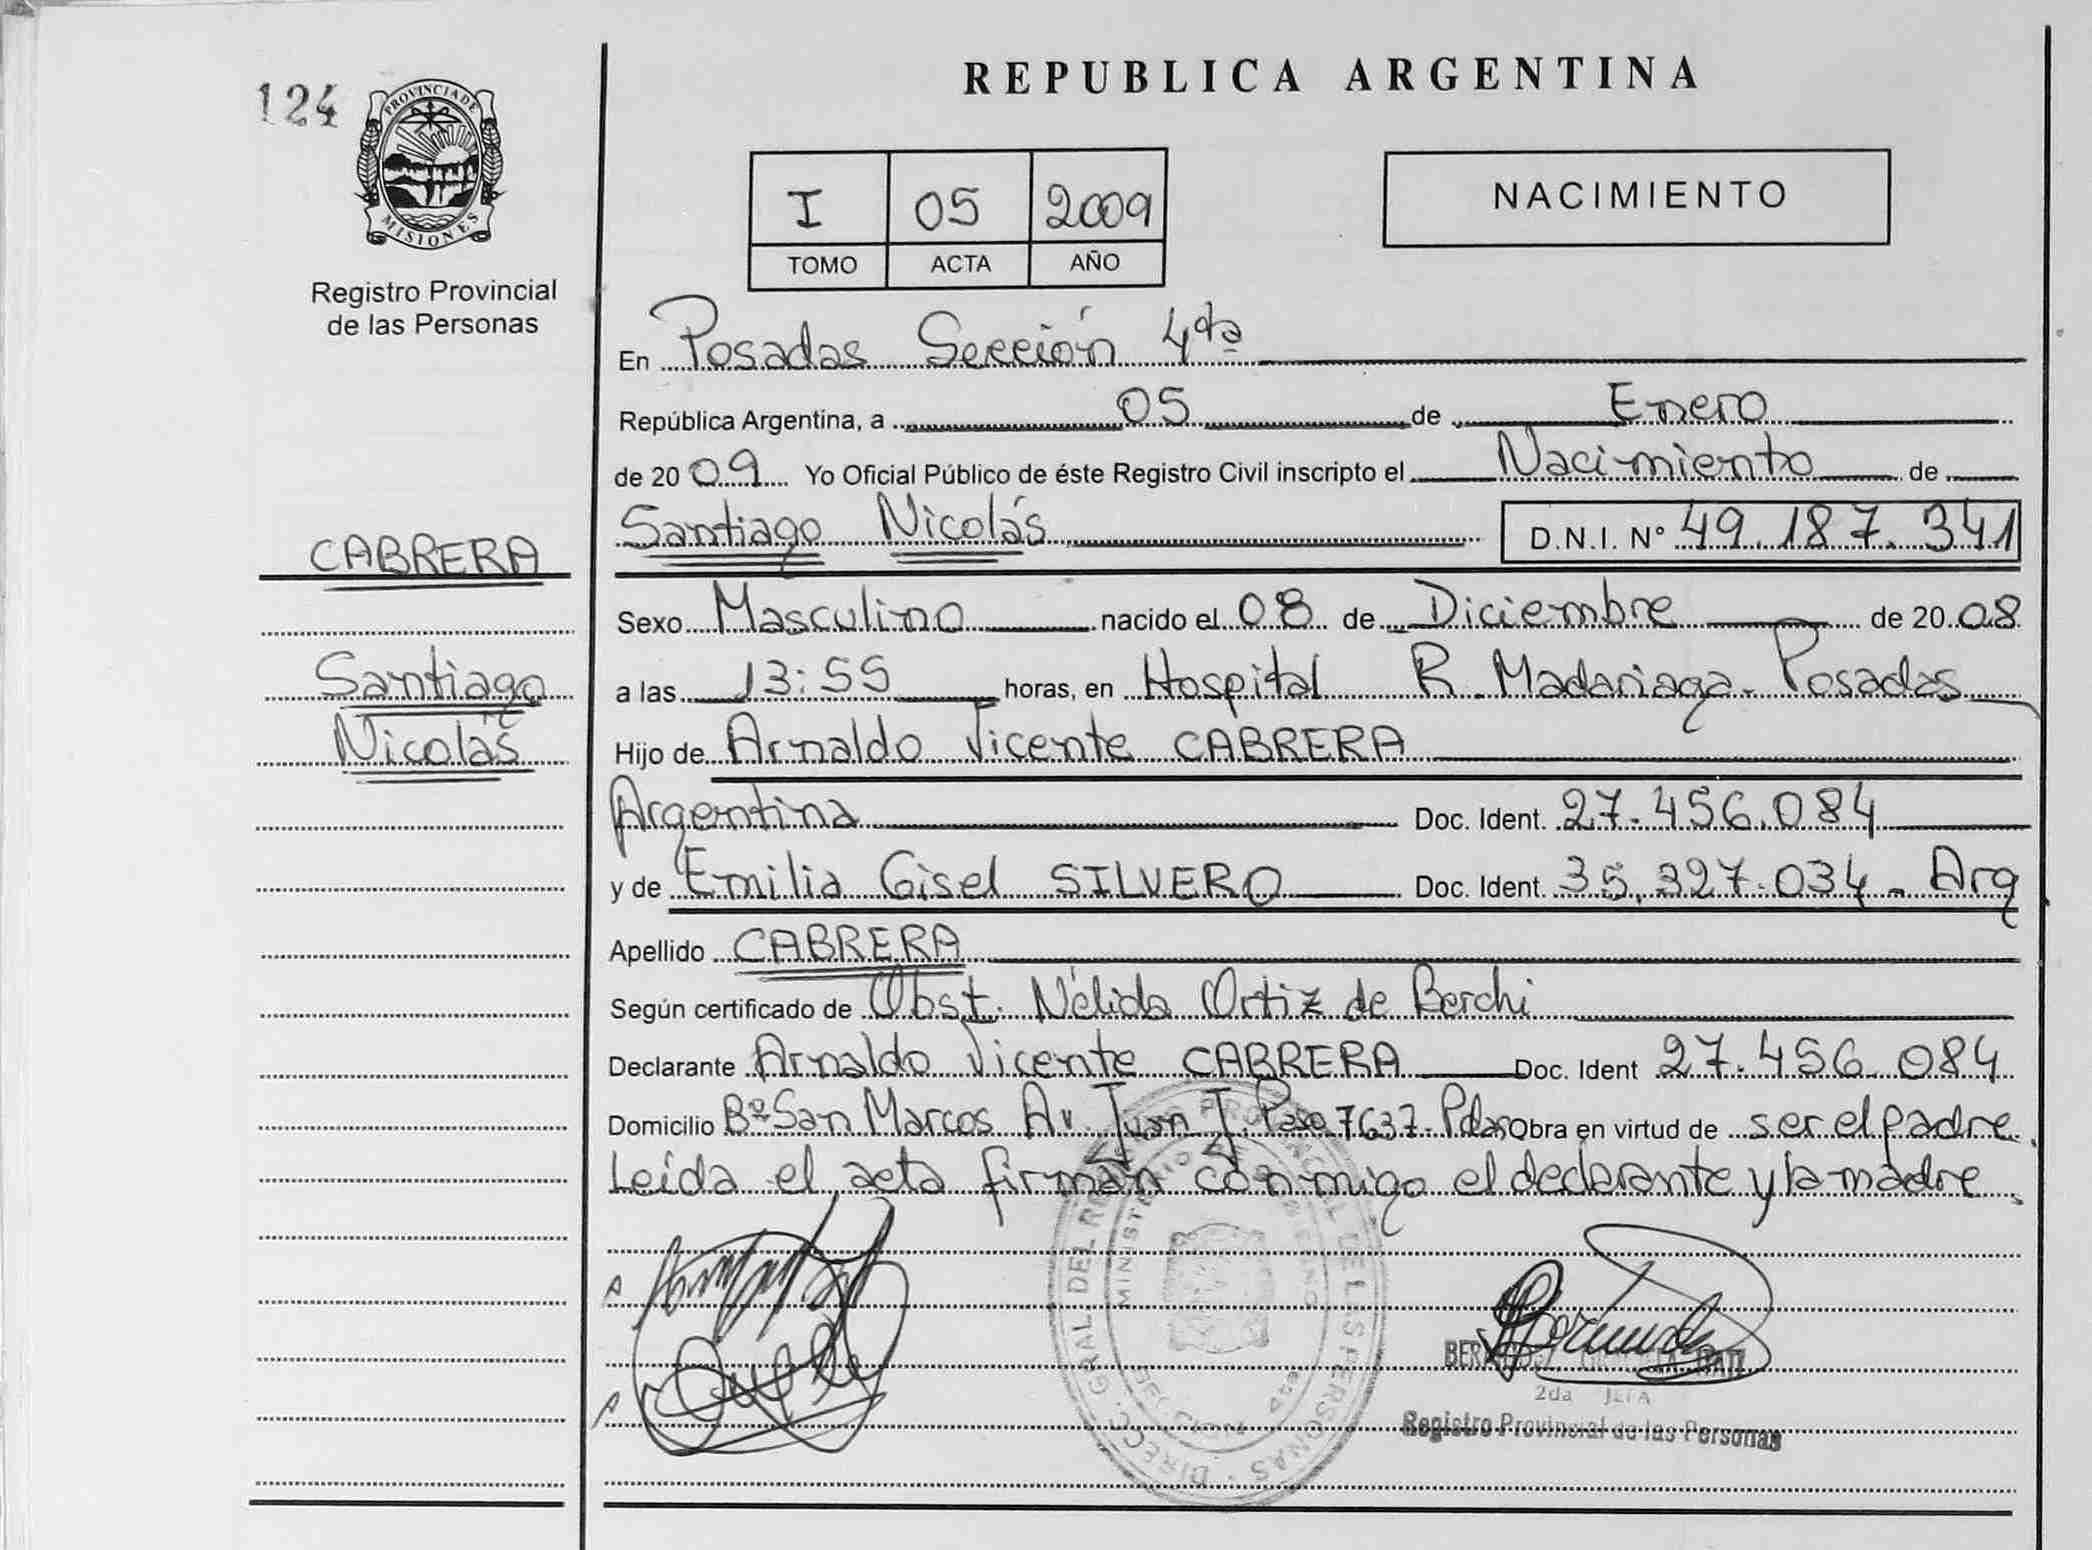 124
PROVINCIA DE
MISIONES
Registro Provincial
de las Personas
CABRERA
Santiago
Nicolás
REPUBLICA ARGENTINA
I 05 2009
TOMO ACTA AÑO
NACIMIENTO
En Posadas Sección 4ta
República Argentina, a 05 de Enero
de 20 09 Yo Oficial Público de éste Registro Civil inscripto el Nacimiento de
Santiago Nicolás D.N.I. N° 49.187.341
Sexo Masculino nacido el 08 de Diciembre de 20 08
a las 13:55 horas, en Hospital R. Madariaga. Posadas
Hijo de Arnaldo Vicente CABRERA
Argentina Doc. Ident. 27.456.084
y de Emilia Gisel SILVERO Doc. Ident. 35.327.034. Arg
Apellido CABRERA
Según certificado de Obst. Nélida Ortiz de Berchi
Declarante Arnaldo Vicente CABRERA Doc. Ident 27.456.084
Domicilio Bº San Marcos Av. Juan J. Paso 7637. Pdas Obra en virtud de ser el padre.
Leída el acta firman conmigo el declarante y la madre.
DIRECC. GRAL DEL PROVINCIAL DE LAS PERSONAS
MINISTERIO DE GOBIERNO
SECCION 4ta
2da JEFA
Registro Provincial de las Personas